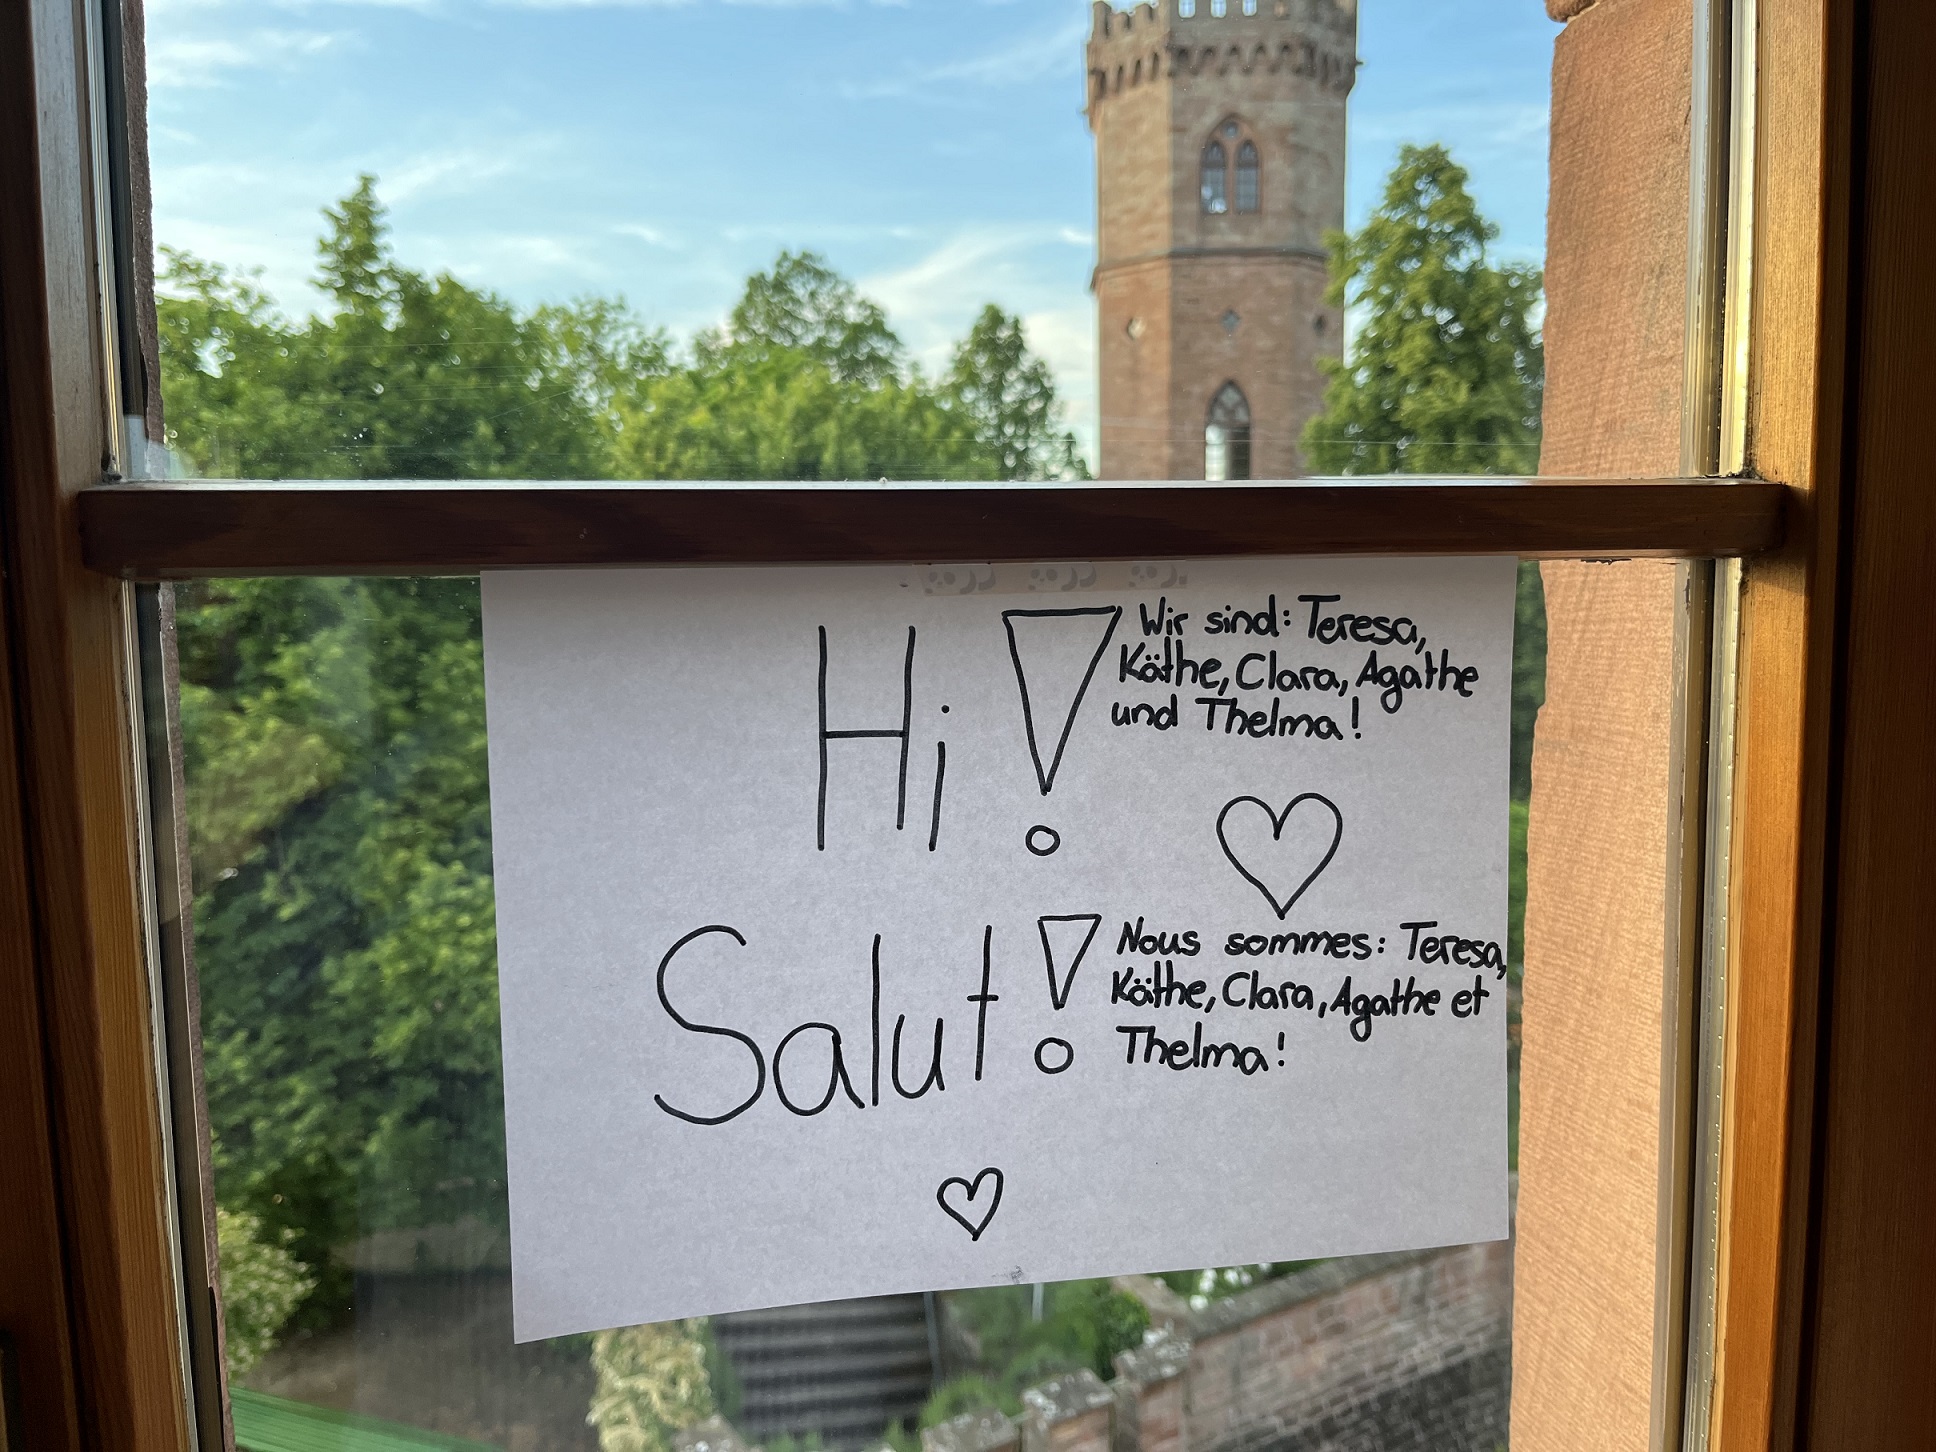 Hi!
Wir sind: Teresa,
Käthe, Clara, Agathe
und Thelma!
Salut!
Nous sommes: Teresa,
Käthe, Clara, Agathe et
Thelma!